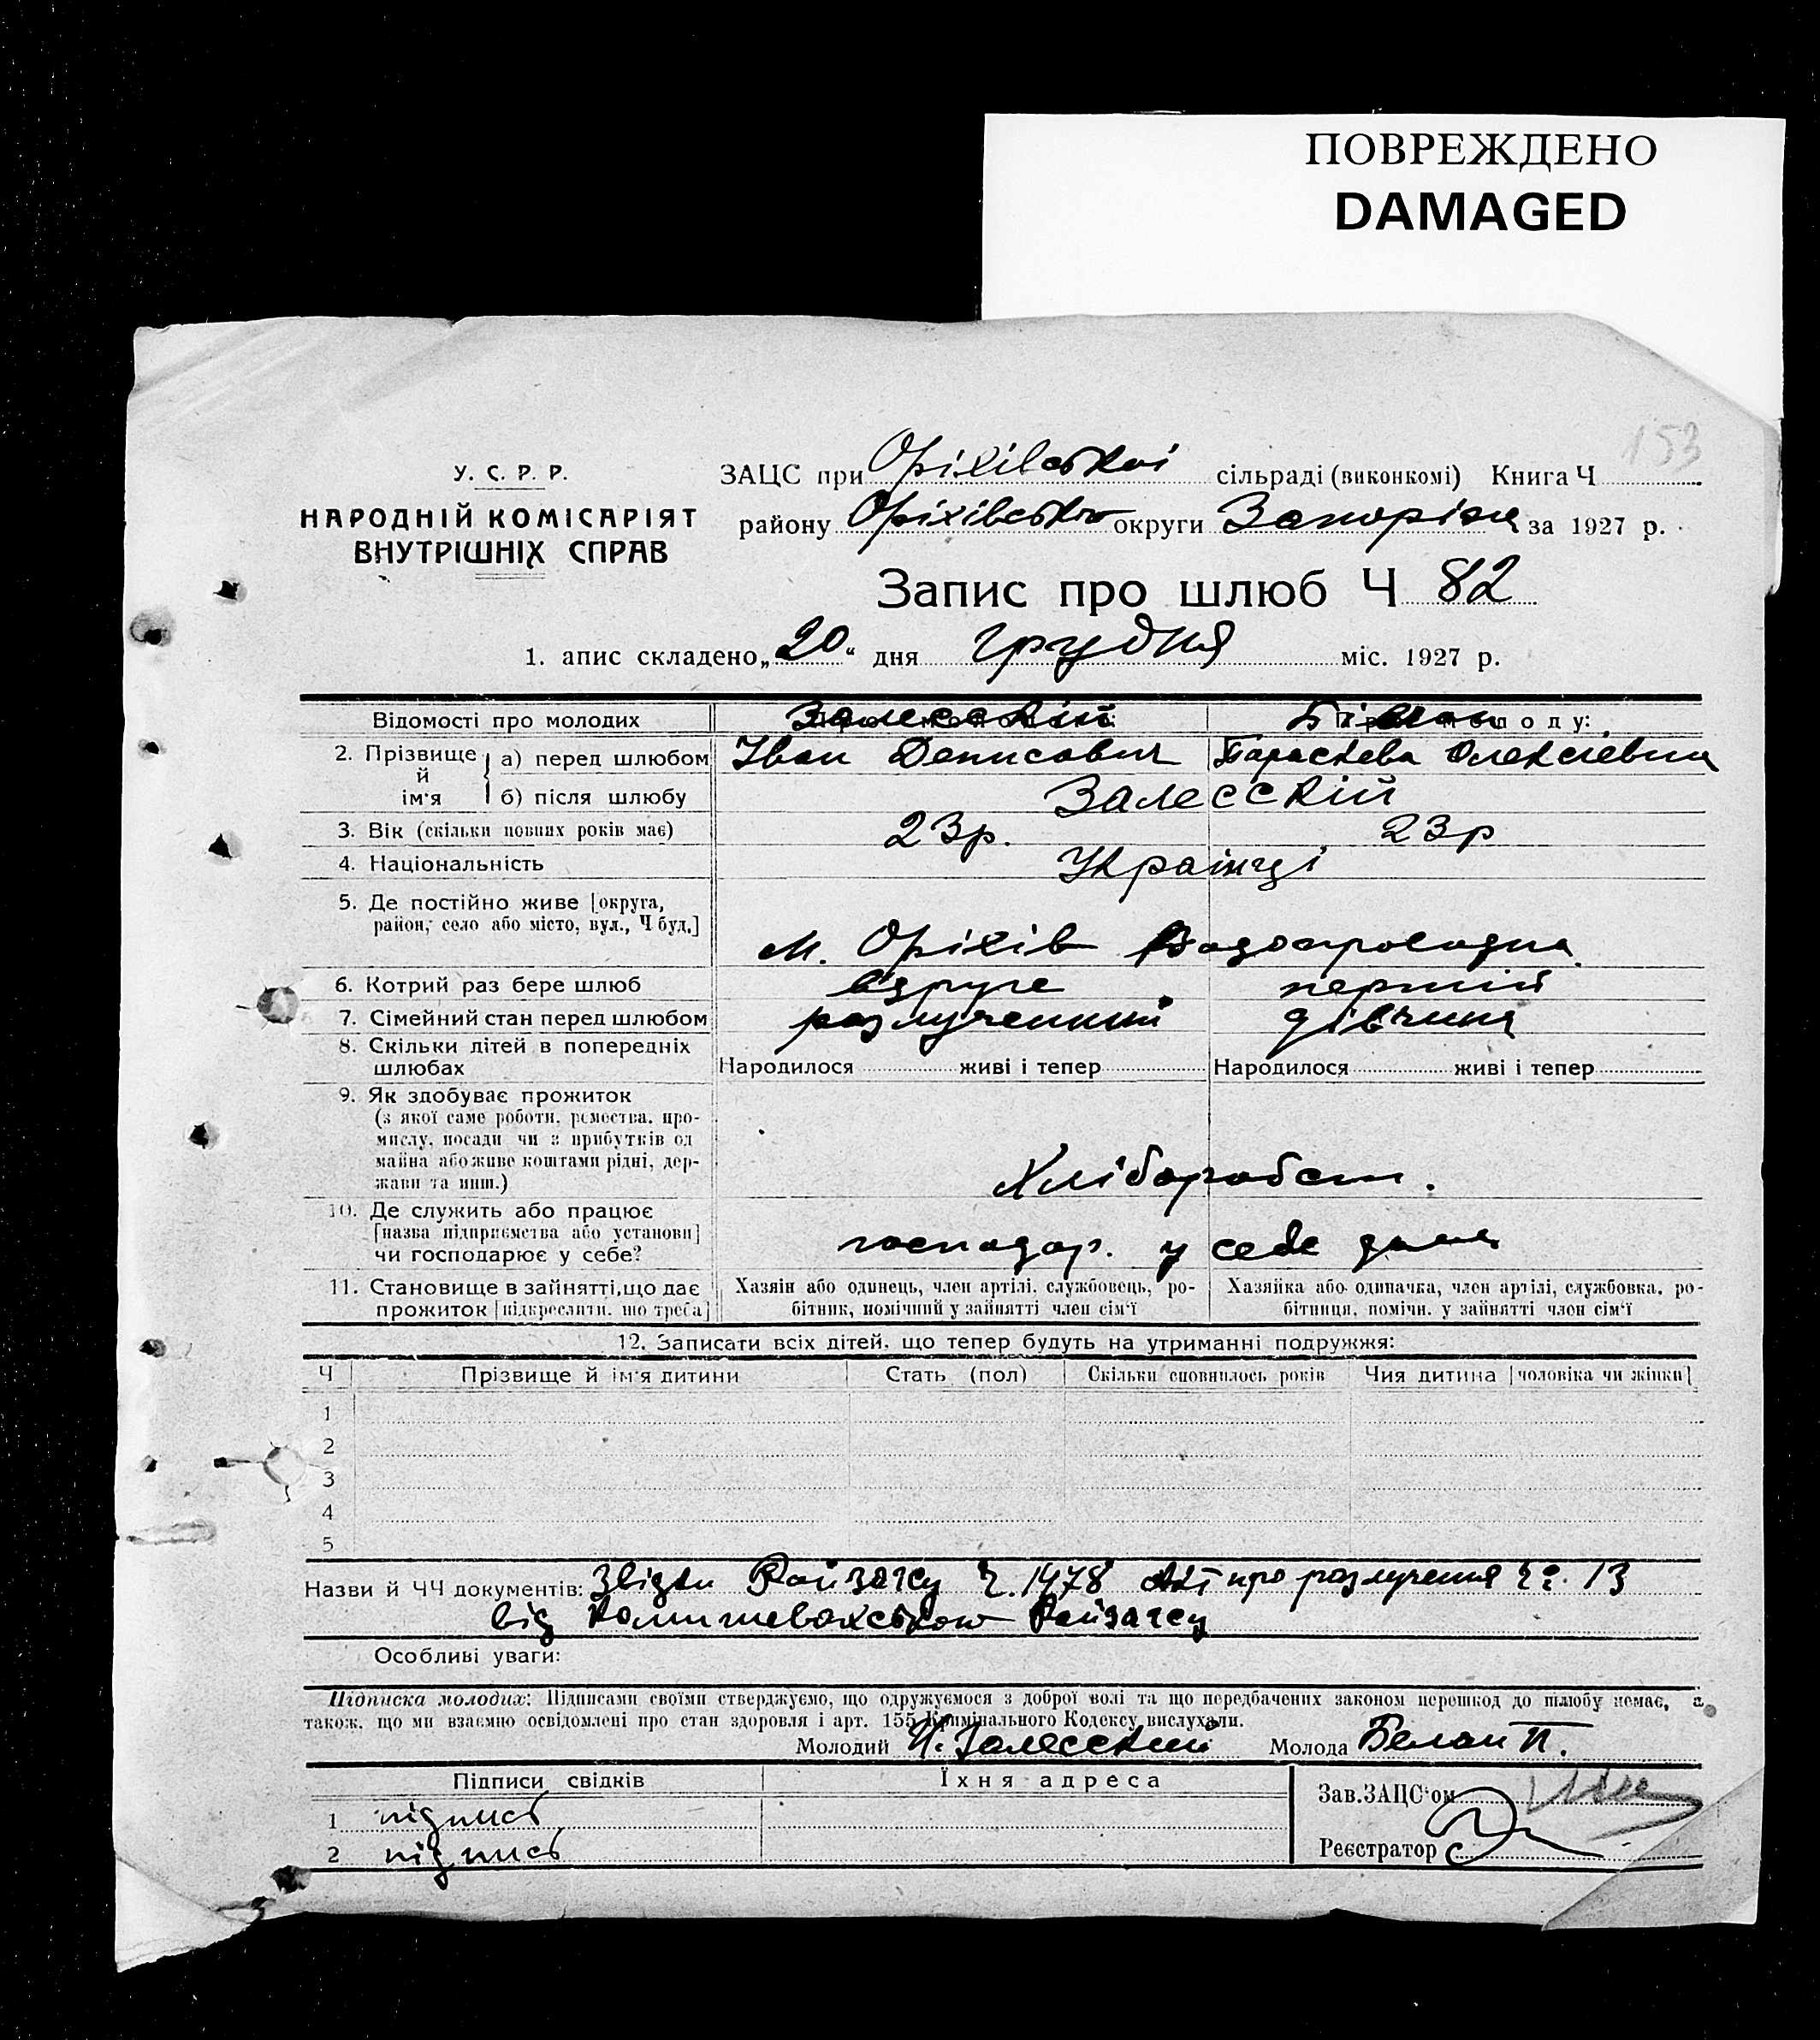 ПОВРЕЖДЕНО
DAMAGED
153
У. С. Р. Р.
НАРОДНІЙ КОМІСАРІЯТ
ВНУТРІШНІХ СПРАВ
ЗАЦС при Оріхівської сільраді (виконкомі) Книга Ч
району Оріхівського округи Запоріжа за 1927 р.
Запис про шлюб Ч 82
1. апис складено „20“ дня грудня міс. 1927 р.
Відомості про молодих Залесский Білан
2. Прізвище й ім'я а) перед шлюбом Іван Денисович Параскева Олексіевна
б) після шлюбу Залесскій
3. Вік (скільки повних років має) 23р. 23р
4. Національність Українці
5. Де постійно живе [округа,
район, село або місто, вул., Ч буд.]
м. Оріхів Водопроводна
6. Котрий раз бере шлюб вдруге перший
7. Сімейний стан перед шлюбом розлучений дівчина
8. Скільки дітей в попередніх
шлюбах Народилося живі і тепер Народилося живі і тепер
9. Як здобуває прожиток
(з якої саме роботи, ремества, про-
мислу, посади чи з прибутків од
майна або живе коштами рідні, дер-
жави та инш.) Хліборобст.
10. Де служить або працює
[назва підприємства або установи]
чи господарює у себе? господар. у себе дома
11. Становище в зайнятті, що дає
прожиток [підкреслити, що треба]
Хазяін або одинець, член артілі, службовець, ро-
бітник, помічний у зайнятті член сім'ї
Хазяйка або одиначка, член артілі, службовка, ро-
бітниця, помічн. у зайнятті член сім'ї
12. Записати всіх дітей, що тепер будуть на утриманні подружжя:
Ч Прізвище й ім'я дитини Стать (пол) Скільки сповнилось років Чия дитина [чоловіка чи жінки]
1
2
3
4
5
Назви й ЧЧ документів: Звідки Райзагсу Ч. 1478 Акт про розлучення Ч. 13
від Комишевахського Райзагсу
Особливі уваги:
Підписка молодих: Підписами своїми стверджуємо, що одружуємося з доброї волі та що передбачених законом перешкод до шлюбу немає, а
також, що ми взаємно освідомлені про стан здоровля і арт. 155 Кримінального Кодексу вислухали.
Молодий И. Залесский Молода Белан П.
Підписи свідків Їхня адреса
1 підпись
2 підпись
Зав. ЗАЦС'ом
Реєстратор